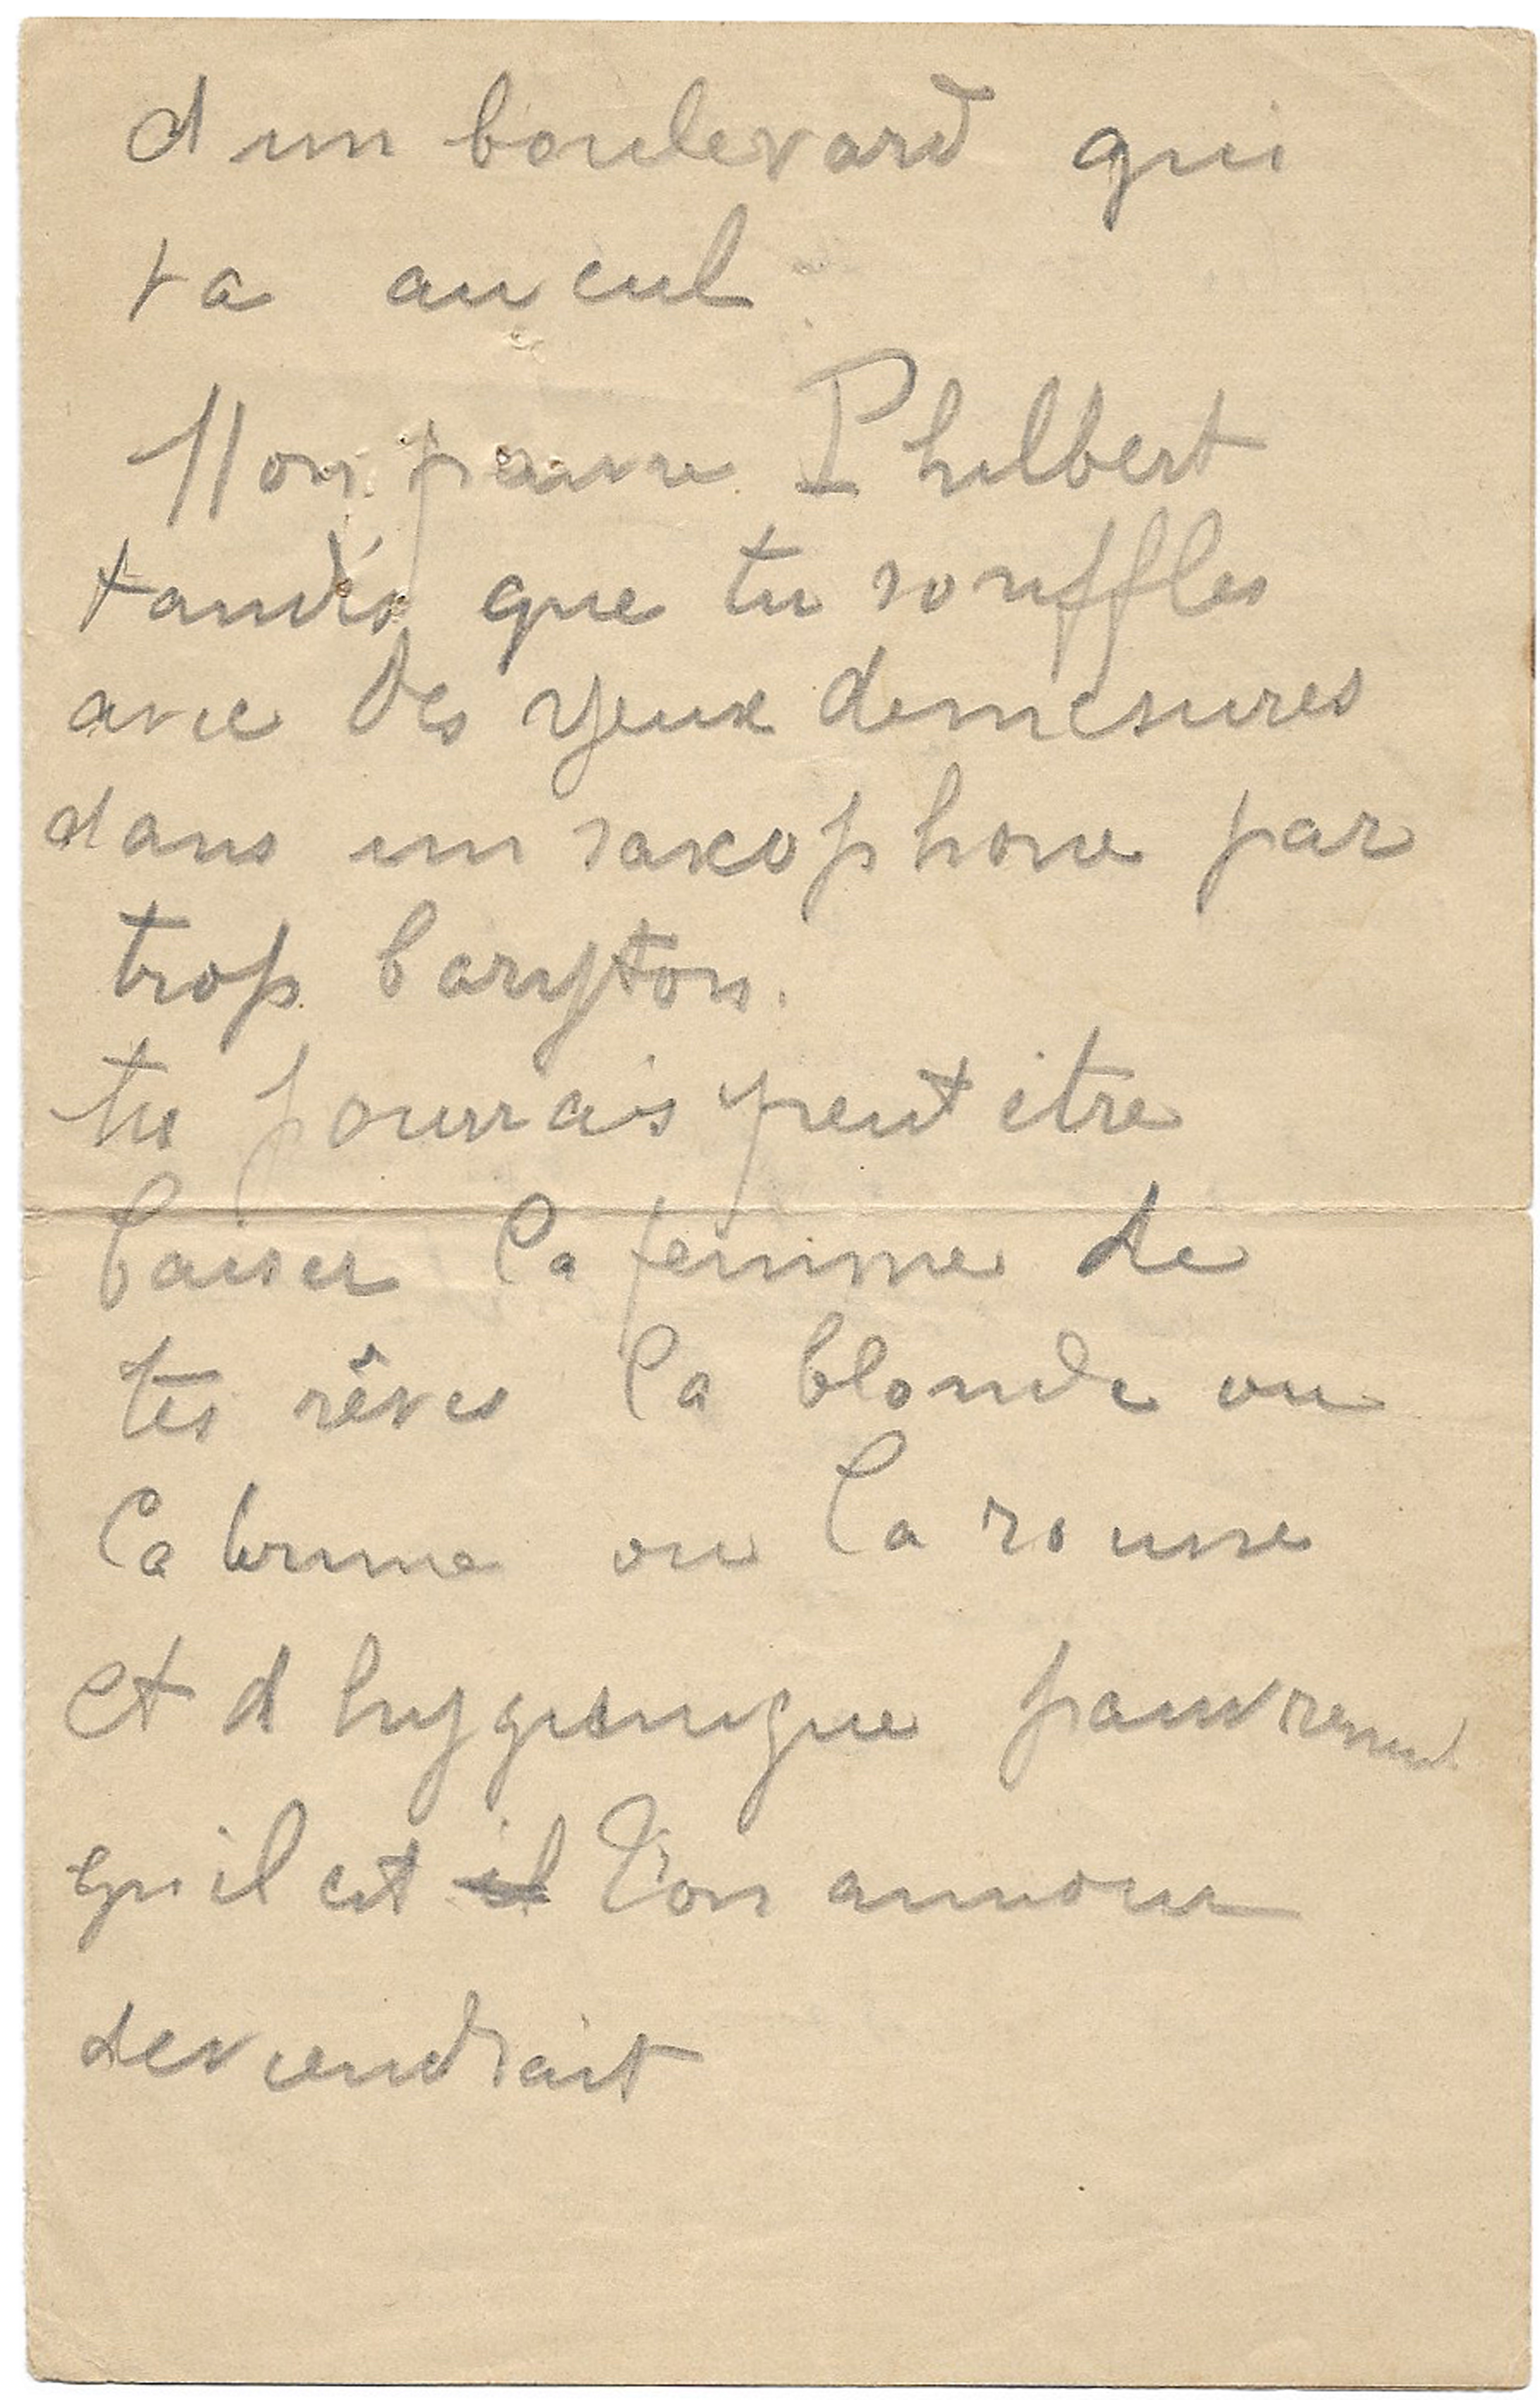 d un boulevard qui
va au cul
Mon pauvre Philbert
tandis que tu souffles
avec des yeux demesures
dans un saxophone par
trop baryton.
tu pourrais peut etre
baiser la femme de
tes rêves la blonde ou
la brune ou la rousse
et d hygienique pauvrement
qu il est il ton amour
deviendrait